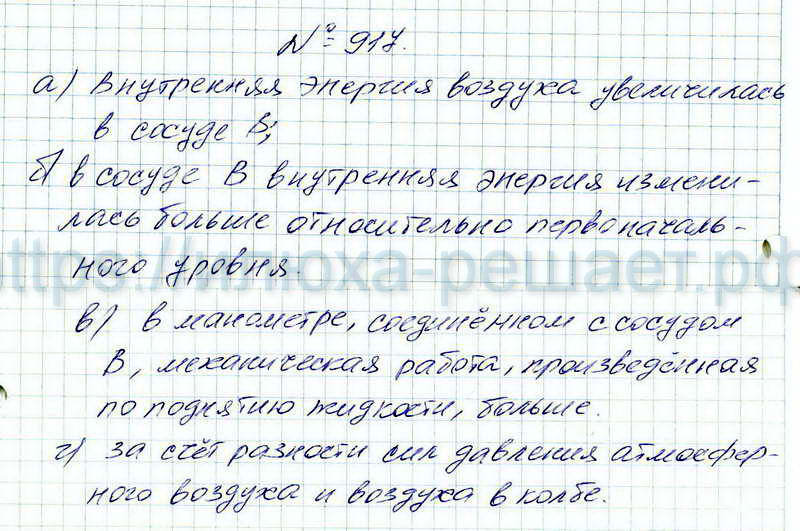 № 917.
а) Внутренняя энергия воздуха увеличилась
в сосуде В;
б) в сосуде В внутренняя энергия измени-
лась больше относительно первоначаль-
ного уровня.
https://лмоха-решает.рф
в) в манометре, соединённом с сосудом
В, механическая работа, произведённая
по поднятию жидкости, больше.
г) за счёт разности сил давления атмосфер-
ного воздуха и воздуха в колбе.